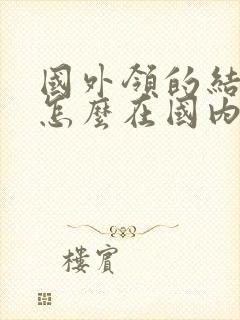 國外領的結
怎麼在國內
樓賓